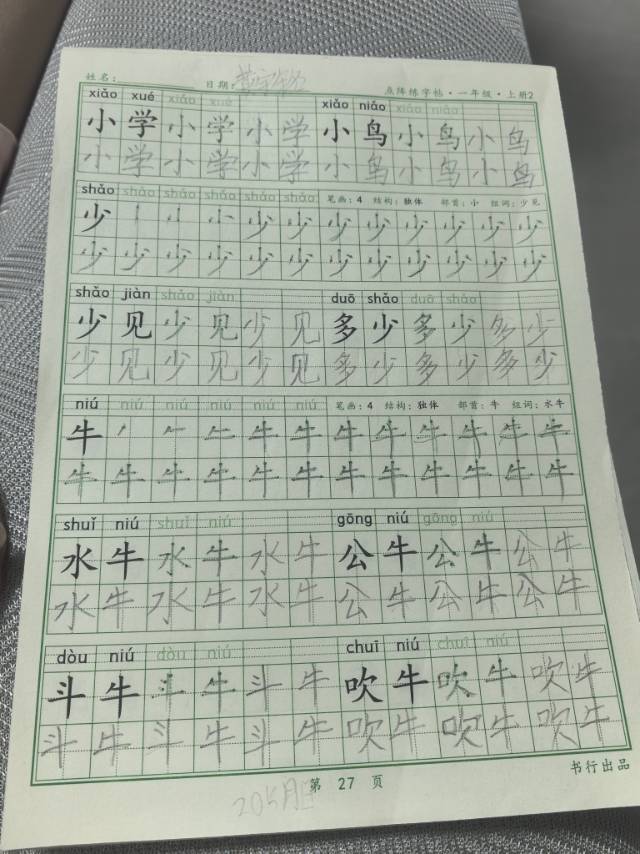 姓名： 日期： 点阵练字帖·一年级·上册2
xiǎo xué xiǎo xué xiǎo niǎo xiǎo niǎo
小学小学小学小鸟小鸟小鸟
小学小学小学小鸟小鸟小鸟
shǎo shǎo shǎo shǎo shǎo shǎo 笔画：4 结构：独体 部首：小 组词：少见
少少少少少少少少少
少少少少少少少少少少少少少
shǎo jiàn shǎo jiàn duō shǎo duō shǎo
少见少见少见多少多少多少
少见少见少见多少多少多少
niú niú niú niú niú niú 笔画：4 结构：独体 部首：牛 组词：水牛
牛牛牛牛牛牛牛牛牛牛
牛牛牛牛牛牛牛牛牛牛牛牛牛
shuǐ niú shuǐ niú gōng niú gōng niú
水牛水牛水牛公牛公牛公牛
水牛水牛水牛公牛公牛公牛
dòu niú dòu niú chuī niú chuī niú
斗牛斗牛斗牛吹牛吹牛吹牛
斗牛斗牛斗牛吹牛吹牛吹牛
第 27 页 书行出品